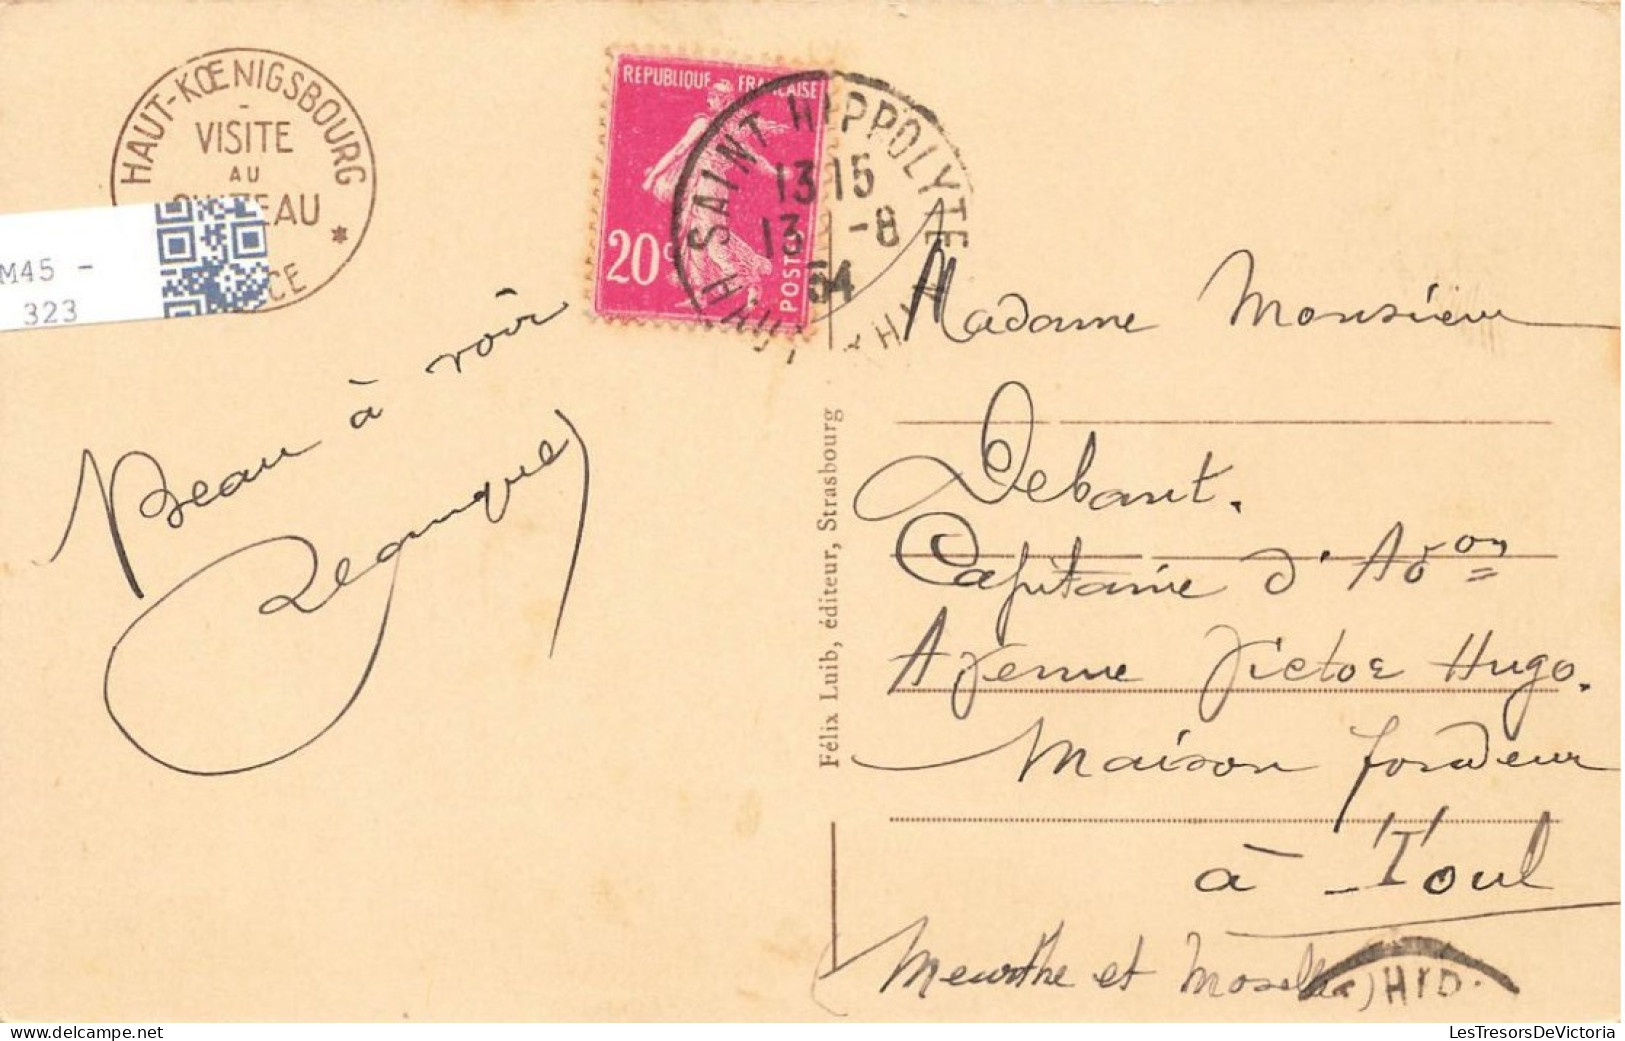 HAUT-KŒNIGSBOURG
-
VISITE
AU
CHATEAU
*
M45 -
323
REPUBLIQUE FRANÇAISE
20c
POSTES
SAINT HIPPOLYTE
13 15
13 -8
34
HAUT RHIN
Beau à voir
Félix Luib, éditeur, Strasbourg
Madame Monsieur
Debant.
Capitaine d'A
Avenue Victor Hugo.
Maison fondeur
à Toul
(Meurthe et Moselle)
HYD.
LesTresorsDeVictoria